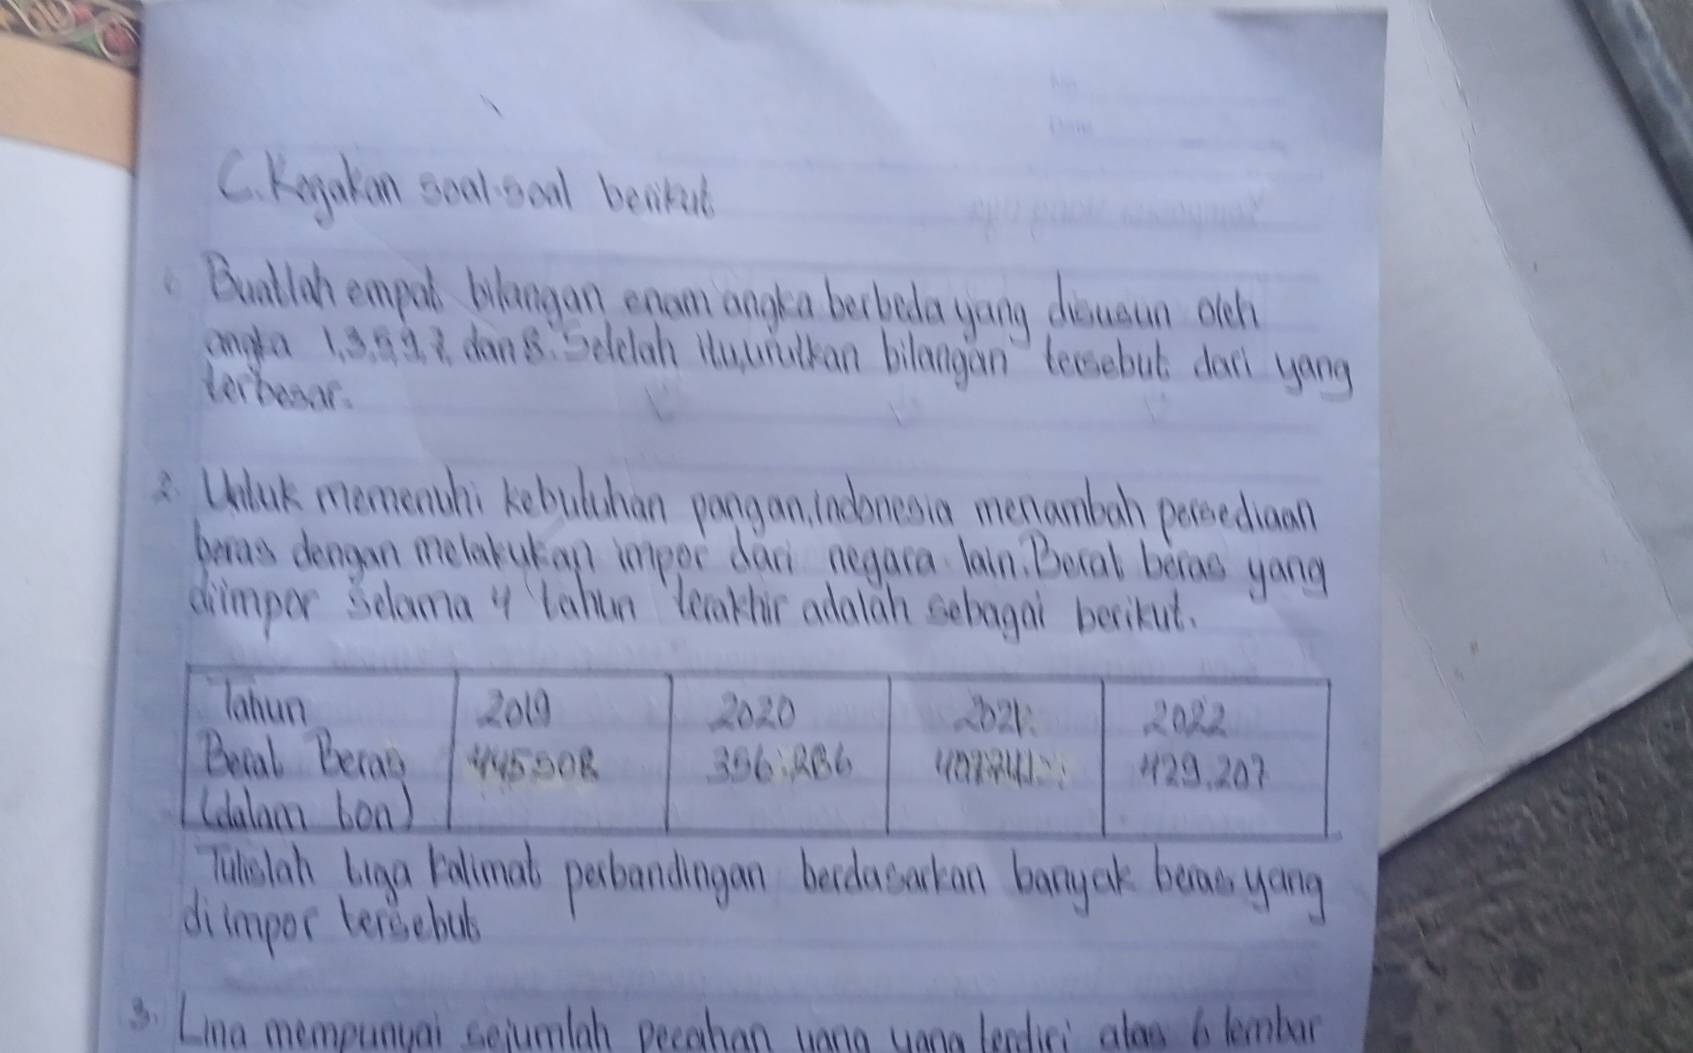 C. Kerjakan soal-soal berikut
Buatlah empat bilangan enam angka berbeda yang disusun oleh
angka 1, 3, 5, 9, 7, dan 8. Setelah itu, urutkan bilangan tersebut dari yang
terbesar.
2. Untuk memenuhi kebutuhan pangan, indonesia menambah persediaan
beras dengan melakukan impor dari negara lain. Berat beras yang
diimpor selama 4 tahun terakhir adalah sebagai berikut.
Tahun 2019 2020 2021 2022
Berat Beras 429.207
(dalam ton)
Tulislah tiga kalimat perbandingan berdasarkan banyak beras yang
diimpor tersebut
3. Lina mempunyai sejumlah pecahan yang terdiri atas 6 lembar